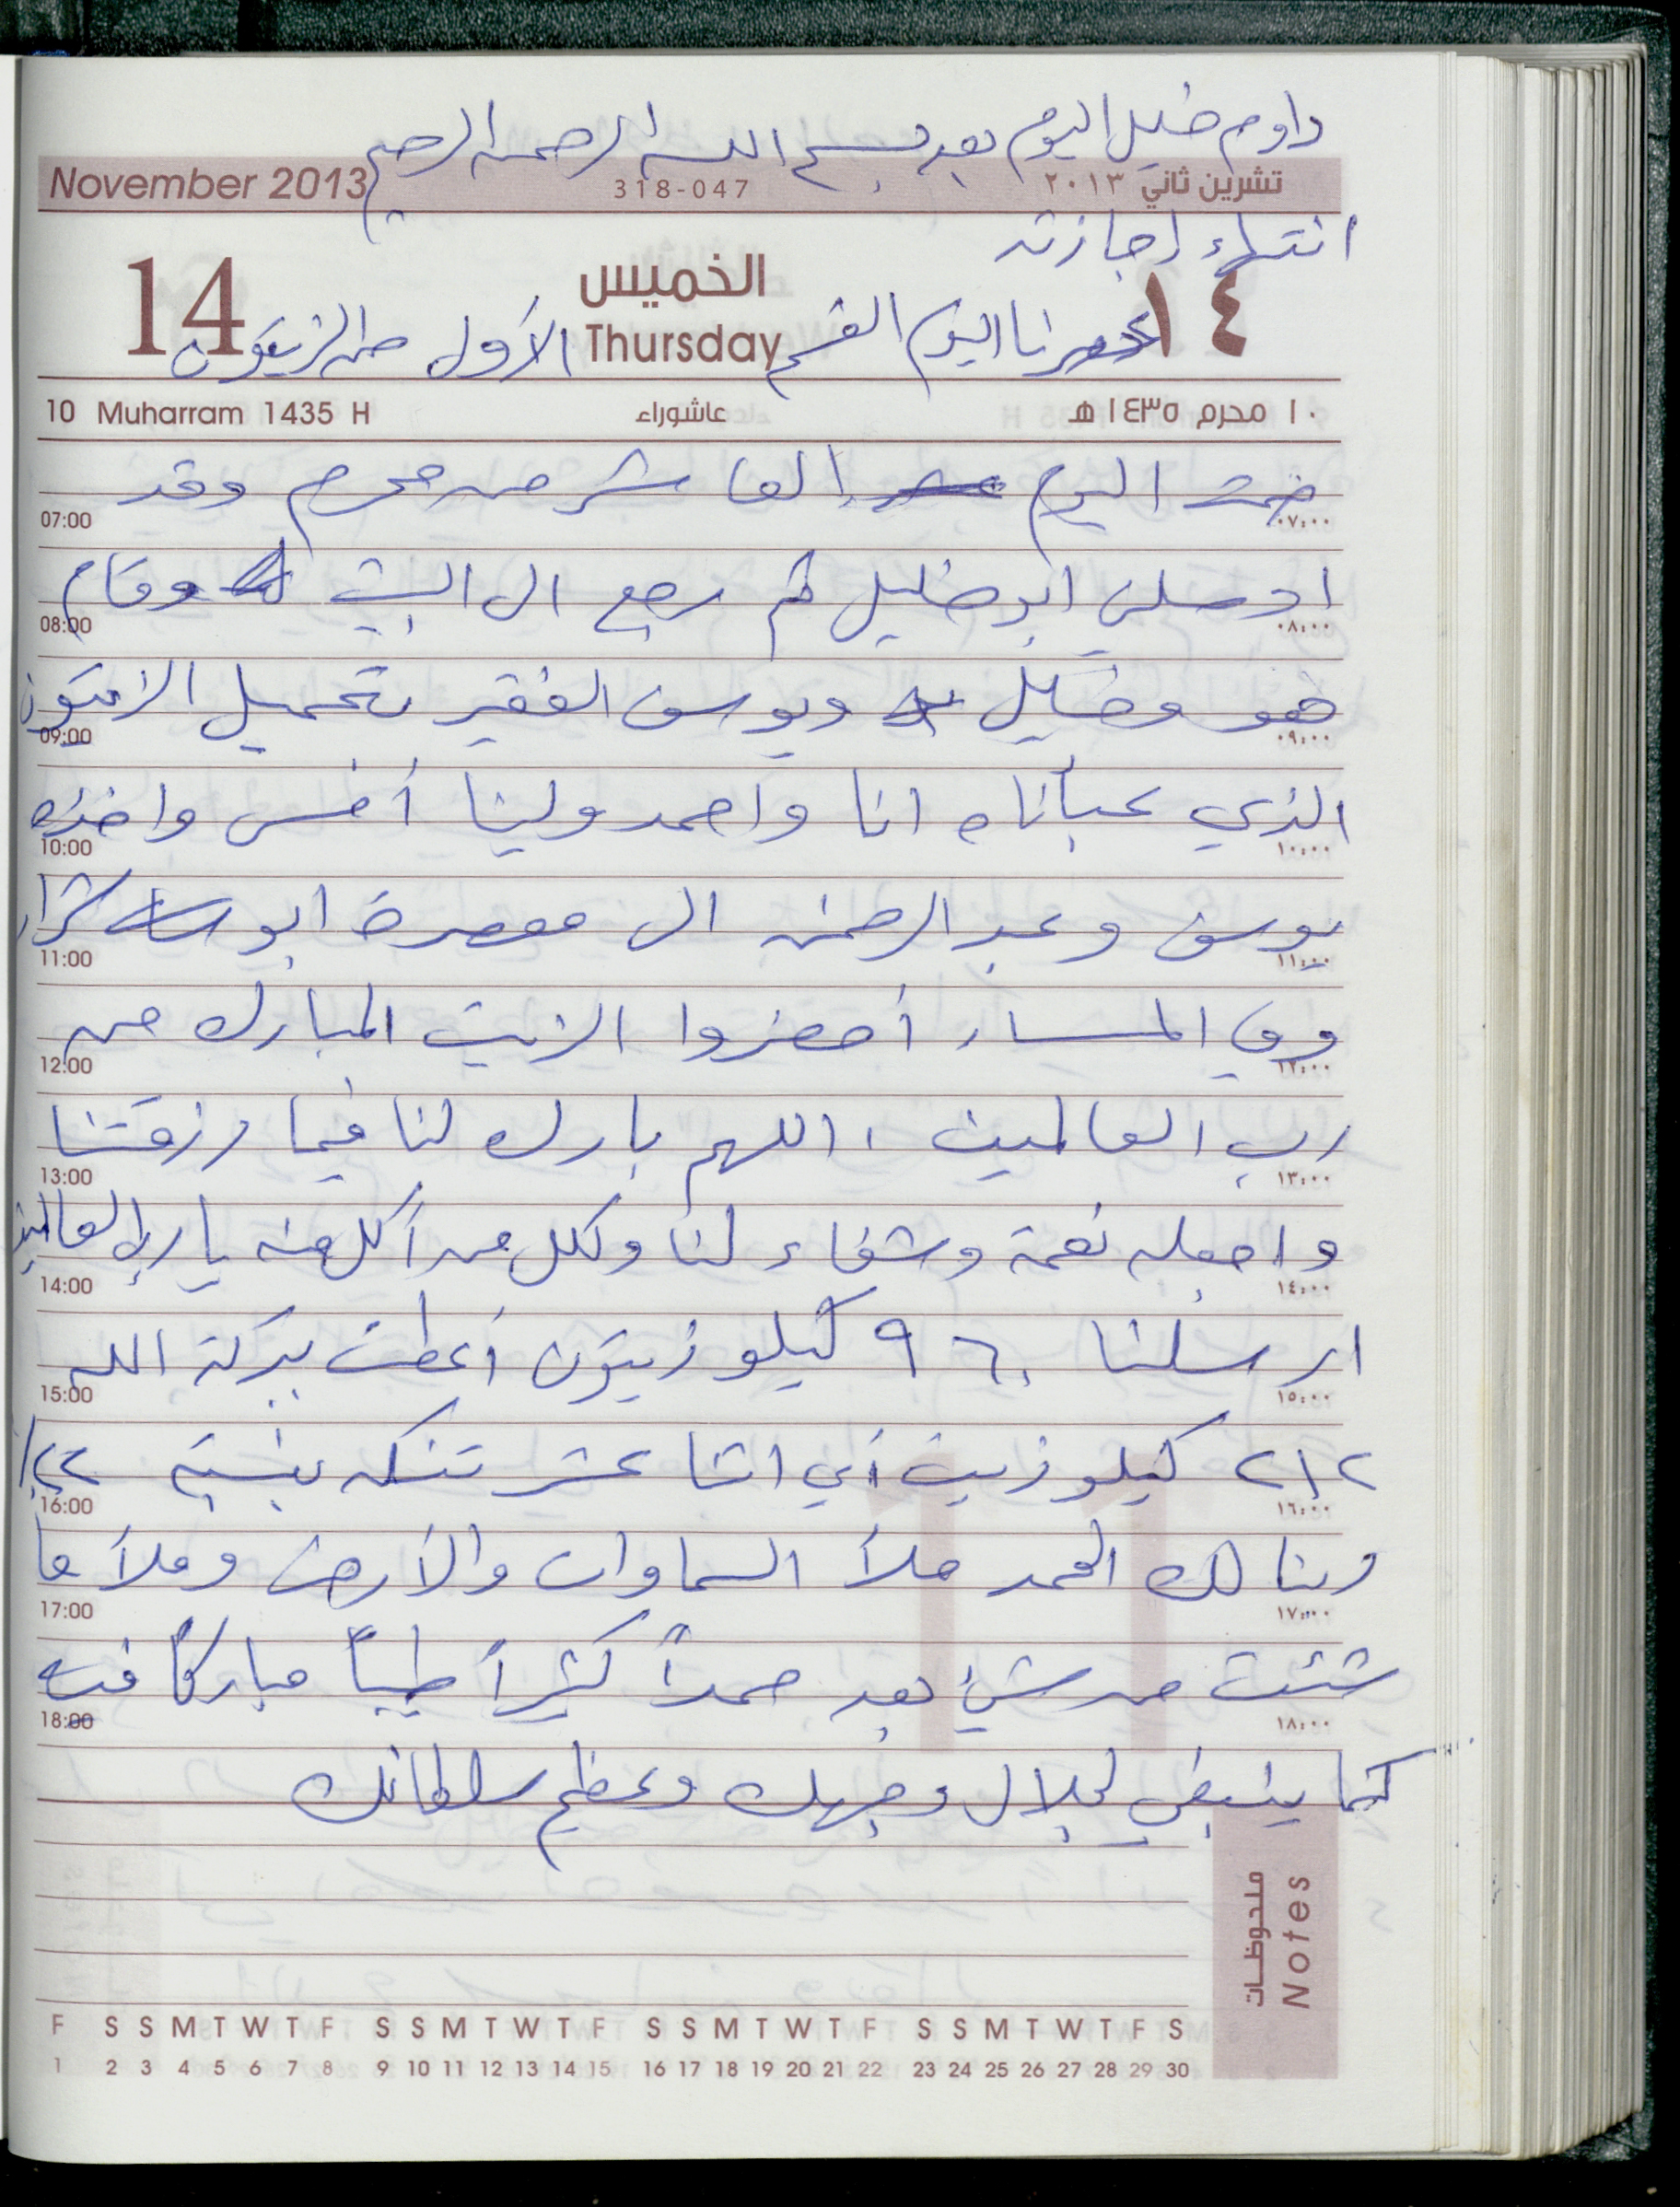 داوم خليل اليوم بعد بسم الله الرحمن الرحيم
November 2013 318-047 تشرين ثاني ٢٠١٣
انتهاء اجازته
14 الخميس ١٤
Thursday
عصرنا اليوم القسم الأول من الزيتون
10 Muharram 1435 H عاشوراء ١٠ محرم ١٤٣٥ هـ
صمت اليوم العاشر من محرم وقد
07:00 ٠٧:٠٠
اوصلني ابو خليل ثم رجع الى البيت وقام
08:00 ٠٨:٠٠
هو وخليل ويوسف الفقير بتحميل الزيتون
09:00 ٠٩:٠٠
الذي عبأناه انا واحمد ولينا أمس واخذه
10:00 ١٠:٠٠
يوسف وعبد الرحمن الى معصرة ابو شرار
11:00 ١١:٠٠
وفي المساء أحضروا الزيت المبارك من
12:00 ١٢:٠٠
رب العالمين ، اللهم بارك لنا فيما رزقتنا
13:00 ١٣:٠٠
واجعله نعمة وشفاء لنا ولكل من أكل منه يا رب العالمين
14:00 ١٤:٠٠
ارسلنا ٩٦٠ كيلو زيتون أعطت بركة الله
15:00 ١٥:٠٠
٢١٢ كيلو زيت أي اثنا عشر تنكه بنسبة ٢٢٪
16:00 ١٦:٠٠
ربنا لك الحمد ملأ السماوات والأرض وملأ ما
17:00 ١٧:٠٠
شئت من شيء بعد حمداً كثيراً طيباً مباركاً فيه
18:00 ١٨:٠٠
كما ينبغي لجلال وجهك وعظيم سلطانك
ملحوظات
Notes
F S S M T W T F S S M T W T F S S M T W T F S S M T W T F S
1 2 3 4 5 6 7 8 9 10 11 12 13 14 15 16 17 18 19 20 21 22 23 24 25 26 27 28 29 30